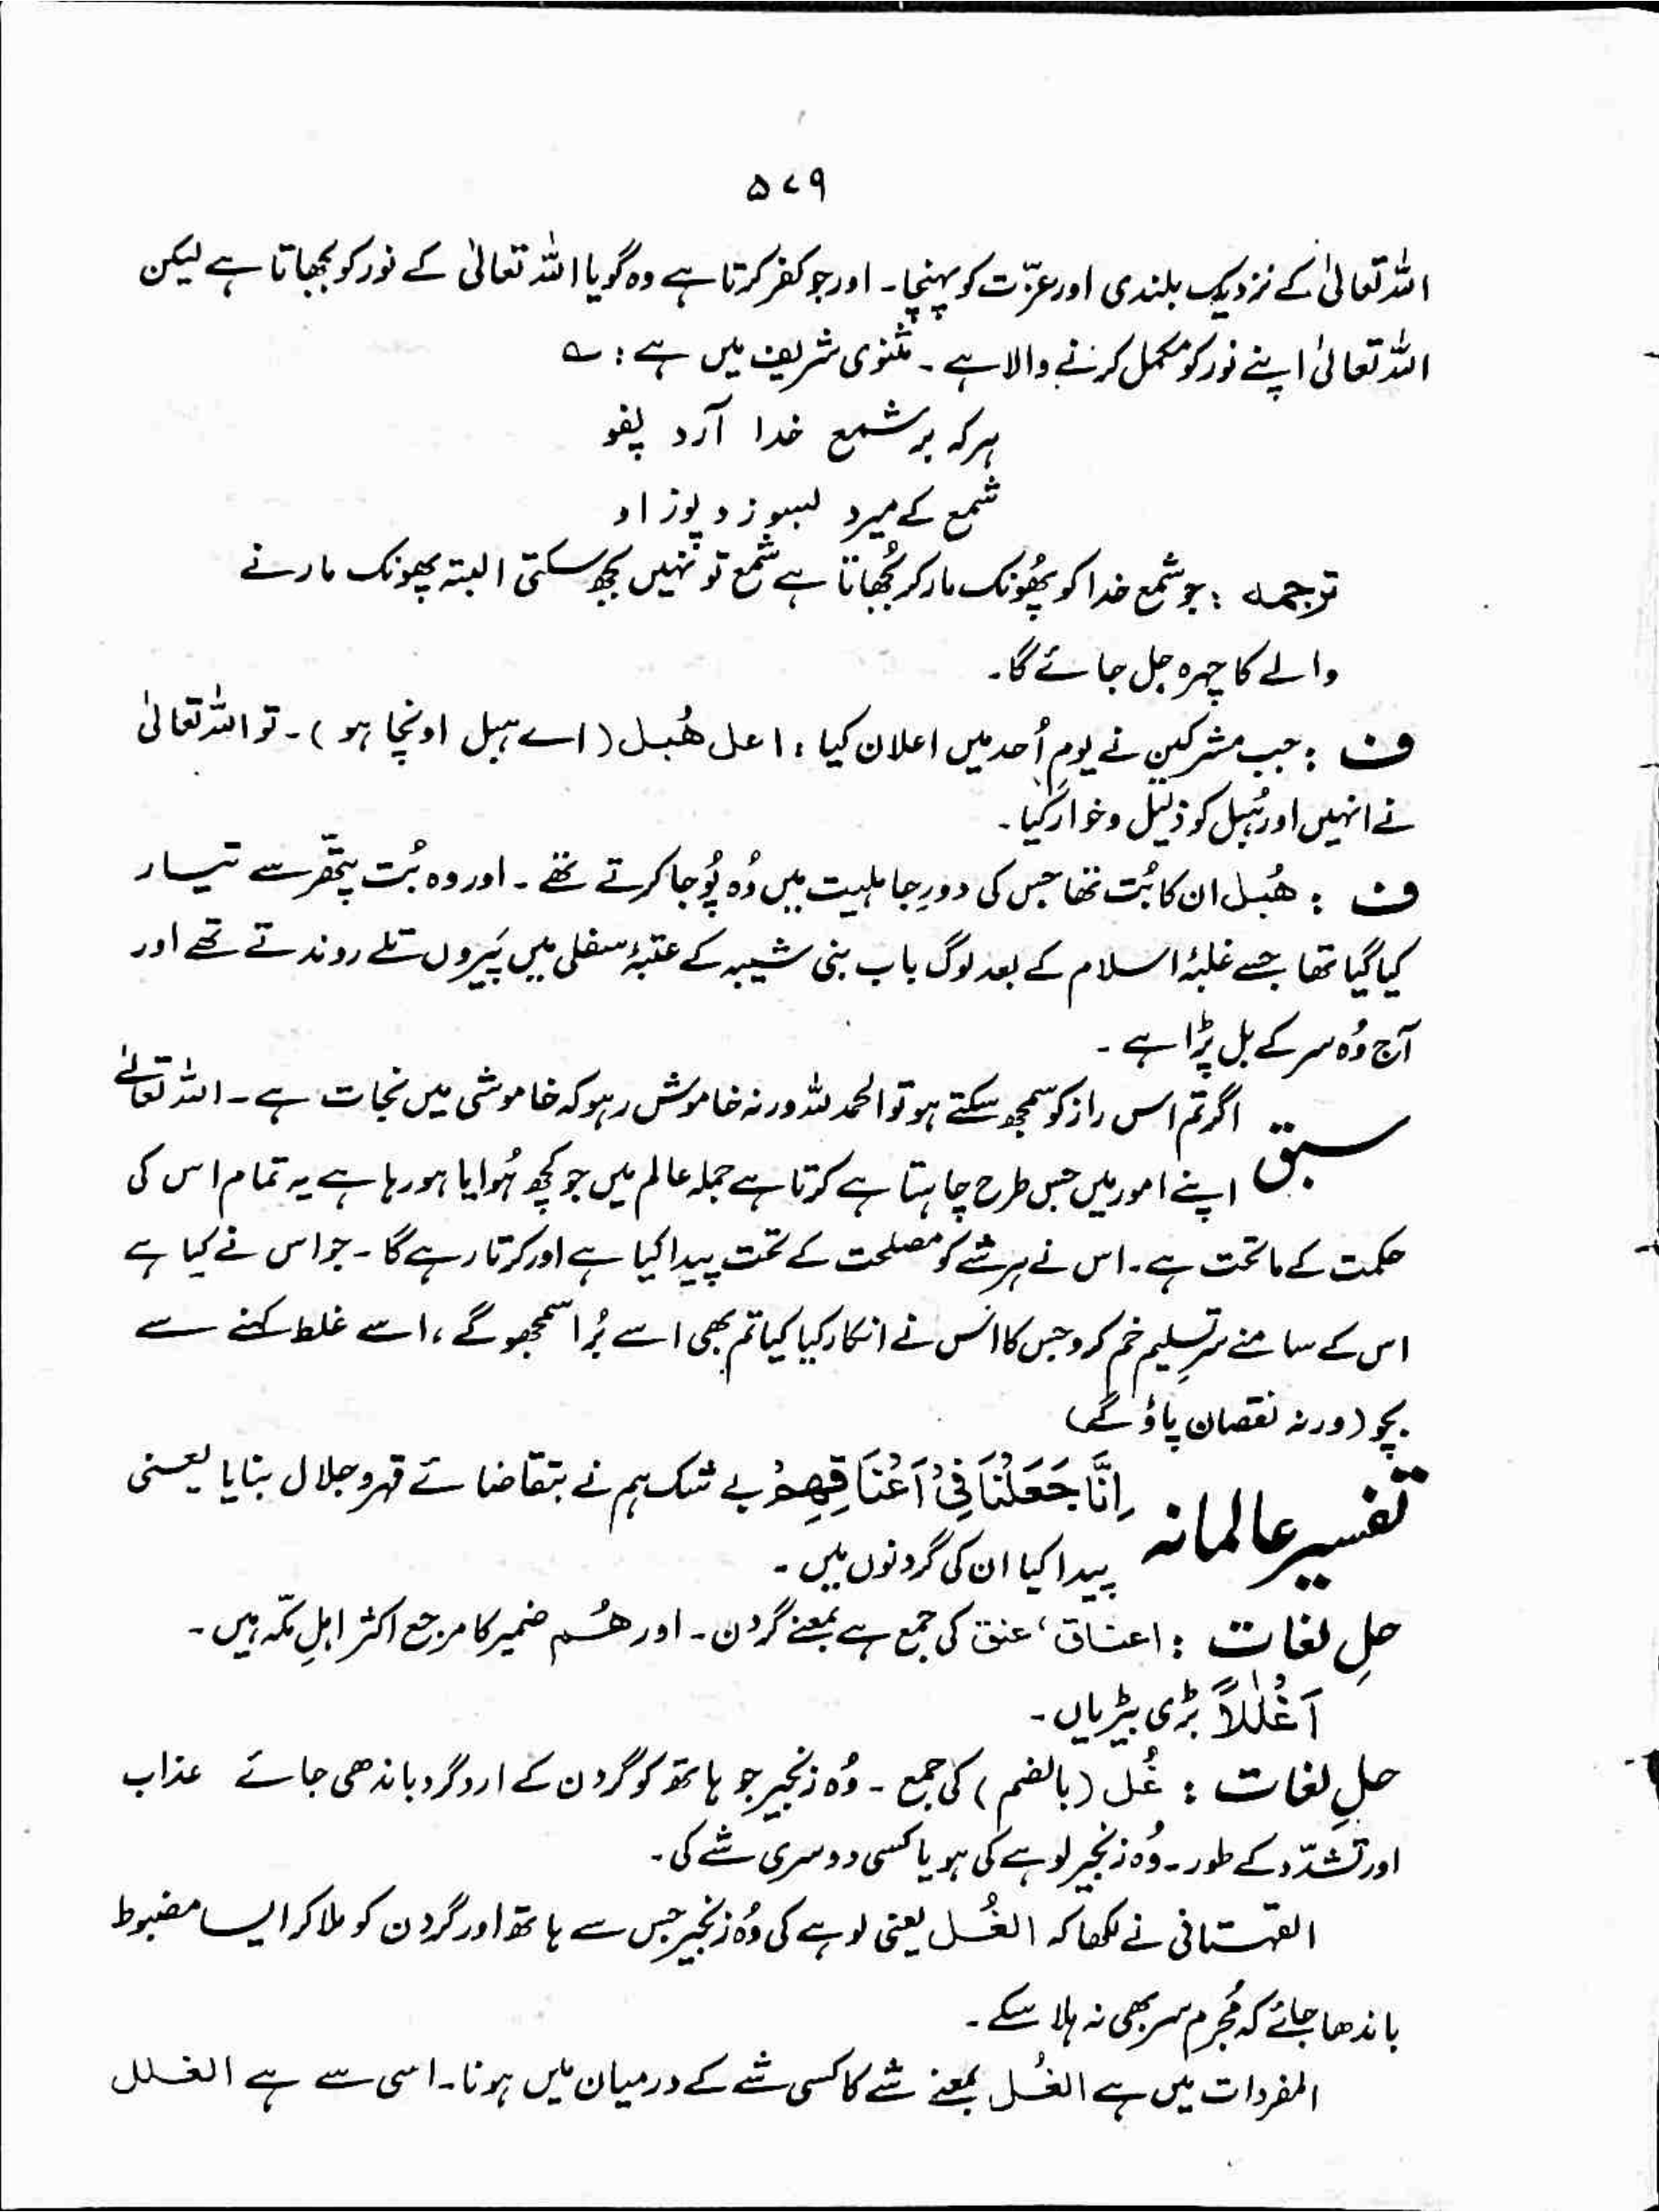 ۵۷۹
اللہ تعالیٰ کے نزدیک بلندی اور عزّت کو پہنچا۔ اور جو کفر کرتا ہے وہ گویا اللہ تعالیٰ کے نور کو بجھاتا ہے لیکن
اللہ تعالیٰ اپنے نور کو مکمل کرنے والا ہے۔ مثنوی شریف میں ہے : ؎
ہرکہ بر شمع خدا آرد پفو
شمع کے میرد بسوزد پوز او
ترجمہ : جو شمع خدا کو پھُونک مار کر بُجھاتا ہے شمع تو نہیں بجھ سکتی البتہ پھونک مارنے
والے کا چہرہ جل جائے گا۔
ف : جب مشرکین نے یومِ اُحد میں اعلان کیا : اعل ھُبل (اے ہبل اونچا ہو)۔ تو اللہ تعالیٰ
نے انہیں اور ہُبل کو ذلیل و خوار کیا۔
ف : ھُبل ان کا بُت تھا جس کی دورِ جاہلیت میں وُہ پُوجا کرتے تھے۔ اور وہ بُت پتھّر سے تیار
کیا گیا تھا جسے غلبۂ اسلام کے بعد لوگ باب بنی شیبہ کے عتبۂ سفلی میں پَیروں تلے روندتے تھے اور
آج وُہ سر کے بل پڑا ہے۔
سبق اگر تم اس راز کو سمجھ سکتے ہو تو الحمد للہ ورنہ خاموش رہو کہ خاموشی میں نجات ہے۔ اللہ تعالےٰ
اپنے امور میں جس طرح چاہتا ہے کرتا ہے جملہ عالم میں جو کچھ ہُوا یا ہو رہا ہے یہ تمام اس کی
حکمت کے ماتحت ہے۔ اس نے ہر شے کو مصلحت کے تحت پیدا کیا ہے اور کرتا رہے گا۔ جو اس نے کیا ہے
اس کے سامنے سرِتسلیم خم کرو جس کا اس نے انکار کیا کیا تم بھی اسے بُرا سمجھو گے ، اسے غلط کہنے سے
بچو (ورنہ نقصان پاؤ گے)
تفسیر عالمانہ اِنَّا جَعَلْنَا فِیْۤ اَعْنَاقِهِمْ بے شک ہم نے بتقاضائے قہر و جلال بنایا یعنی
پیدا کیا ان کی گردنوں میں۔
حلِ لغات : اعناق ، عنق کی جمع ہے بمعنے گردن۔ اور ھُم ضمیر کا مرجع اکثر اہلِ مکّہ ہیں۔
اَغْلٰلًا بڑی بیڑیاں۔
حلِ لغات : غُل (بالضم) کی جمع ۔ وُہ زنجیر جو ہاتھ کو گردن کے اردگرد باندھی جائے عذاب
اور تشدّد کے طور۔ وُہ زنجیر لوہے کی ہو یا کسی دوسری شے کی۔
القہستانی نے لکھا کہ الغُل یعنی لوہے کی وُہ زنجیر جس سے ہاتھ اور گردن کو ملا کر ایسا مضبوط
باندھا جائے کہ مُجرم سر بھی نہ ہلا سکے۔
المفردات میں ہے الغُل بمعنے شے کا کسی شے کے درمیان میں ہونا۔ اسی سے ہے الغلل